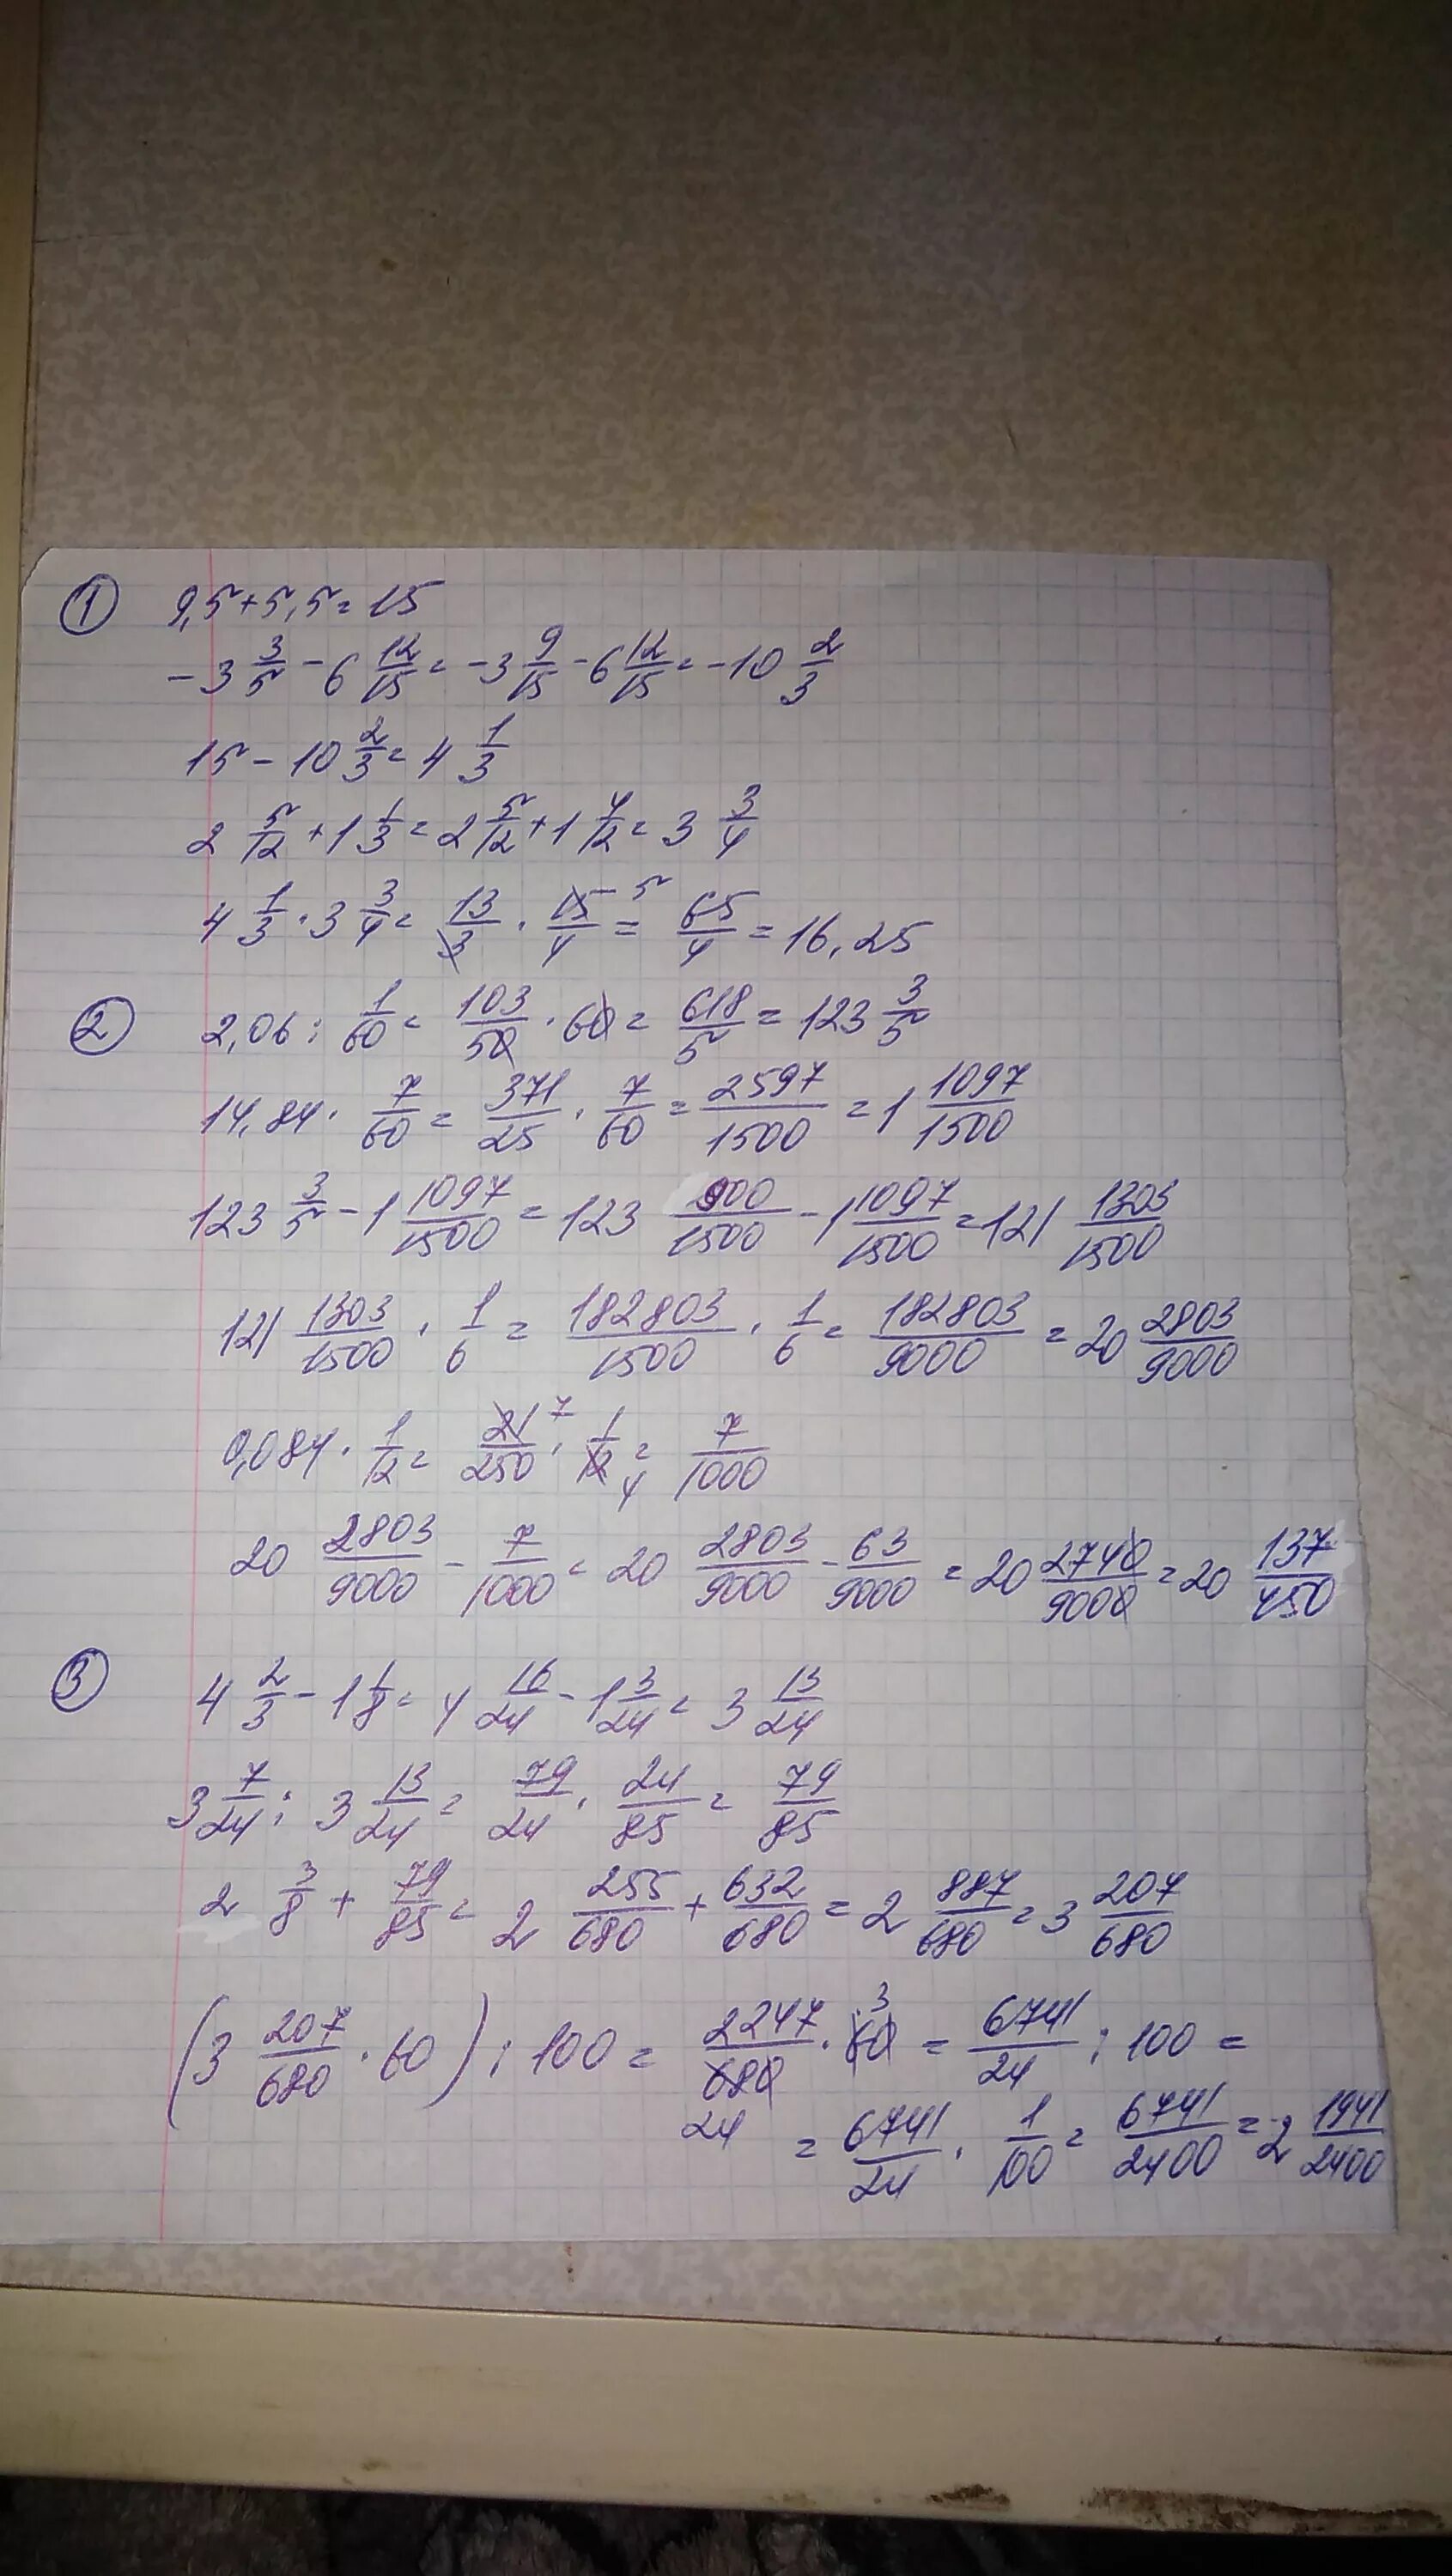 ① 9,5+5,5=15
-3 3/5 - 6 12/15 = -3 9/15 - 6 12/15 = -10 2/3
15 - 10 2/3 = 4 1/3
2 5/12 + 1 1/3 = 2 5/12 + 1 4/12 = 3 3/4
4 1/3 · 3 3/4 = 13/3 · 15/4 5 = 65/4 = 16,25
② 2,06 : 1/60 = 103/50 · 60 = 618/5 = 123 3/5
14,84 · 7/60 = 371/25 · 7/60 = 2597/1500 = 1 1097/1500
123 3/5 - 1 1097/1500 = 123 900/1500 - 1 1097/1500 = 121 1303/1500
121 1303/1500 · 1/6 = 182803/1500 · 1/6 = 182803/9000 = 20 2803/9000
0,084 · 1/12 = 21/250 7 · 1/12 4 = 7/1000
20 2803/9000 - 7/1000 = 20 2803/9000 - 63/9000 = 20 2740/9000 = 20 137/450
③ 4 2/3 - 1 1/8 = 4 16/24 - 1 3/24 = 3 13/24
3 7/24 : 3 13/24 = 79/24 · 24/85 = 79/85
2 3/8 + 79/85 = 2 255/680 + 632/680 = 2 887/680 = 3 207/680
(3 207/680 · 60) : 100 = 2247/680 24 · 60 3 = 6741/24 : 100 =
= 6741/24 · 1/100 = 6741/2400 = 2 1941/2400